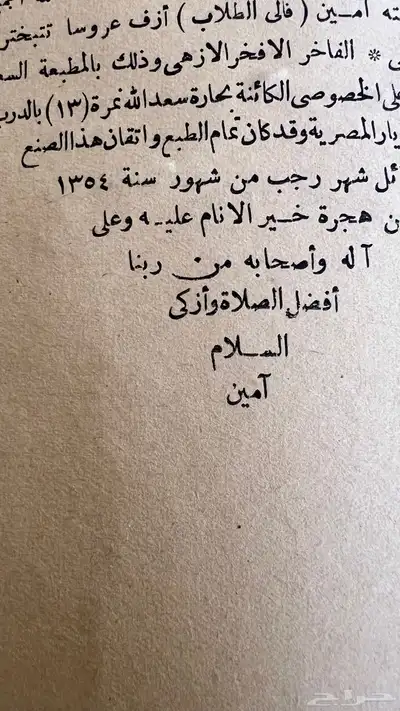 ته امـين ( فالى الطلاب ) أزف عروسا تتبختر
* الفاخر الافخر الازهى وذلك بالمطبعة
على الخصوصى الكائنة بحارة سعد الله نمرة (١٣) بالدرب
يار المصرية وقد كان تمام الطبع واتقان هذا الصنع
ئل شهر رجب من شهور سنة ١٣٥٤
ن هجرة خـير الانام عليـه وعلى
آله وأصحابه من ربنا
أفضل الصلاة وأزكى
السـلام
آمين
حراج